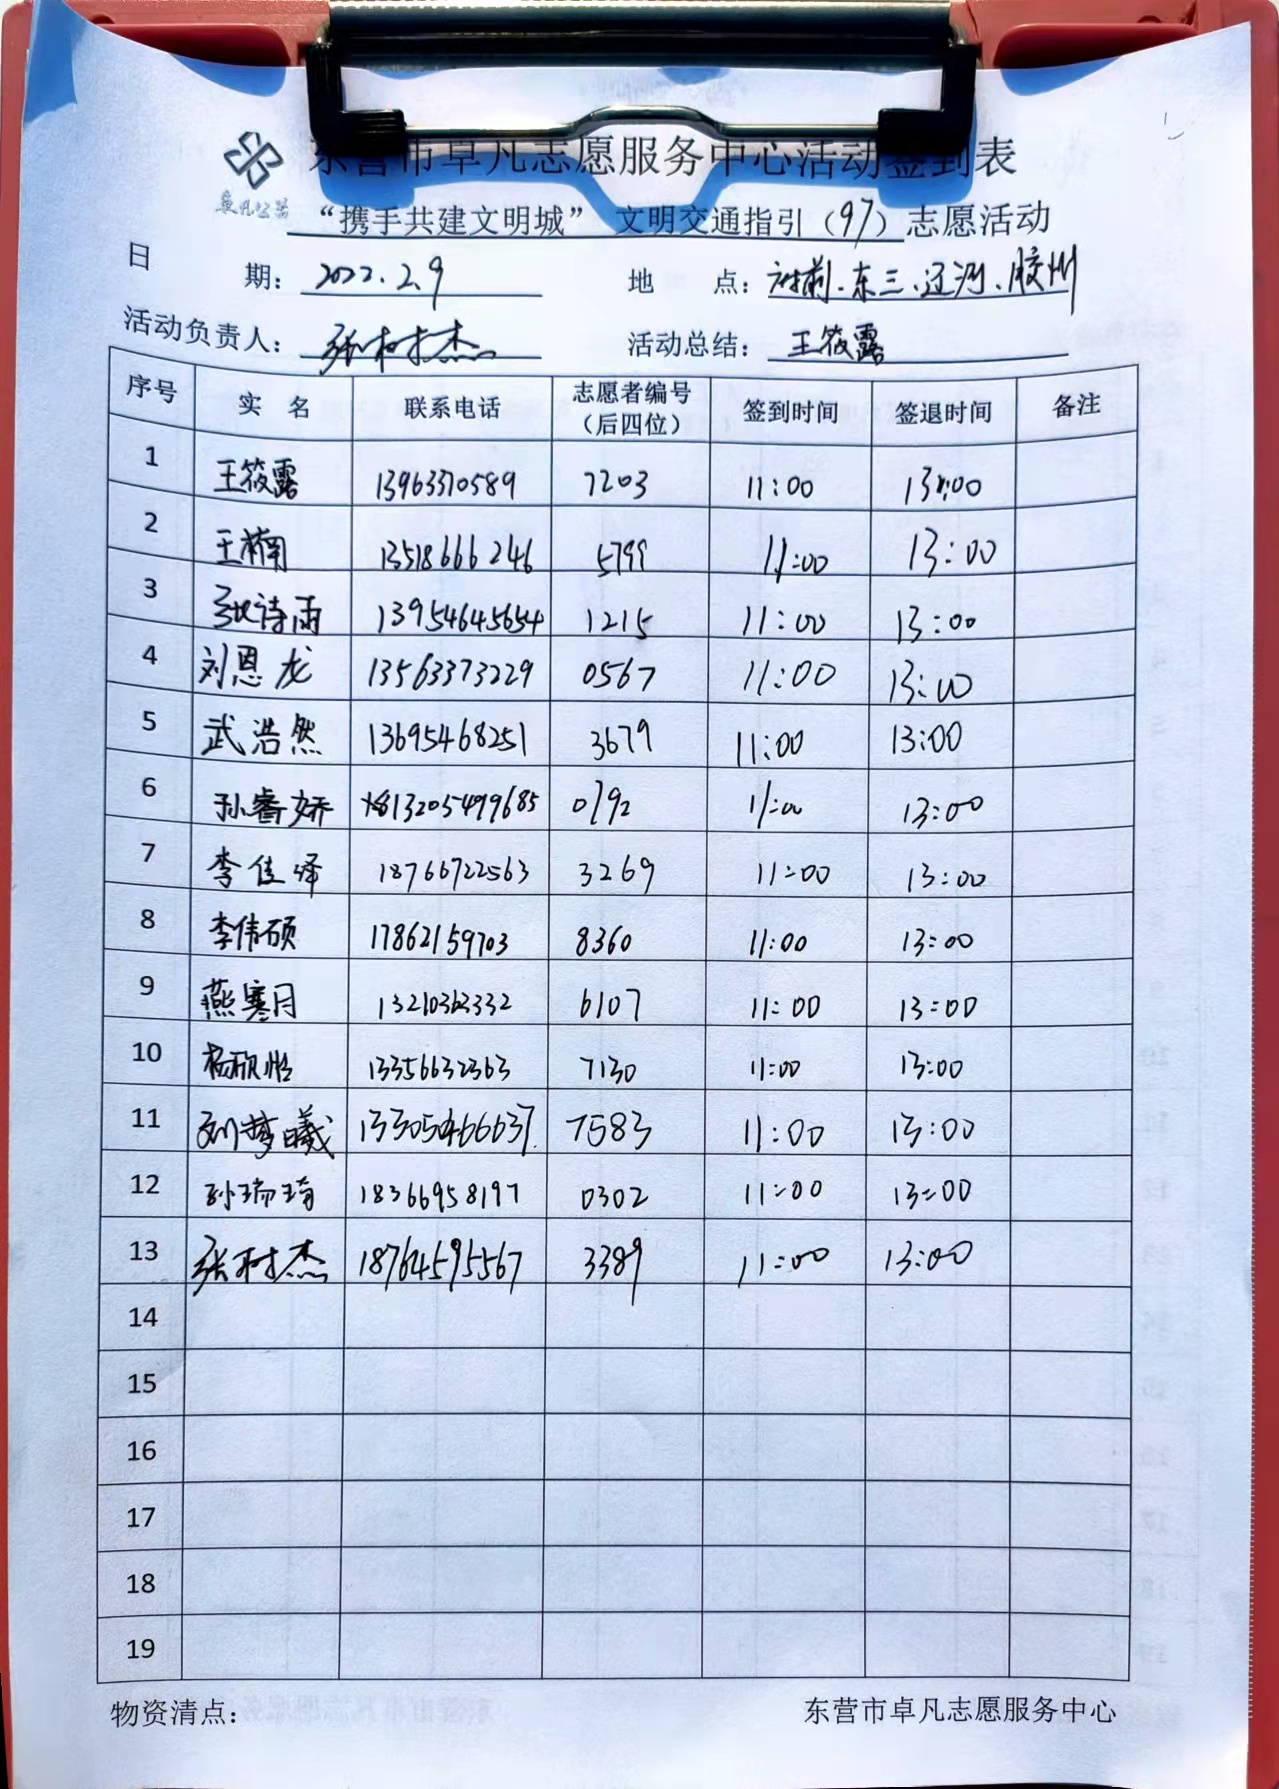 东营市卓凡志愿服务中心活动签到表
卓凡公益
“携手共建文明城” 文明交通指引（97）志愿活动
日 期： 2022.2.9 地 点： 府前、东三、辽河、胶州
活动负责人： 张树杰 活动总结： 王筱露
序号 实 名 联系电话 志愿者编号（后四位） 签到时间 签退时间 备注
1 王筱露 13963370589 7203 11:00 13:00
2 王楠 13518666246 5799 11:00 13:00
3 张诗雨 13954645654 1215 11:00 13:00
4 刘恩龙 13563373229 0567 11:00 13:00
5 武浩然 13695468251 3679 11:00 13:00
6 孙睿娇 13205499685 0792 11:00 13:00
7 李佳绎 18766722563 3269 11:00 13:00
8 李伟硕 17862159703 8360 11:00 13:00
9 燕寒月 6107 11:00 13:00
10 杨欣怡 13356632363 7130 11:00 13:00
11 刘梦曦 13305466637 7583 11:00 13:00
12 孙瑞琦 18366958197 0302 11:00 13:00
13 张树杰 18764595567 3389 11:00 13:00
14
15
16
17
18
19
物资清点： 东营市卓凡志愿服务中心